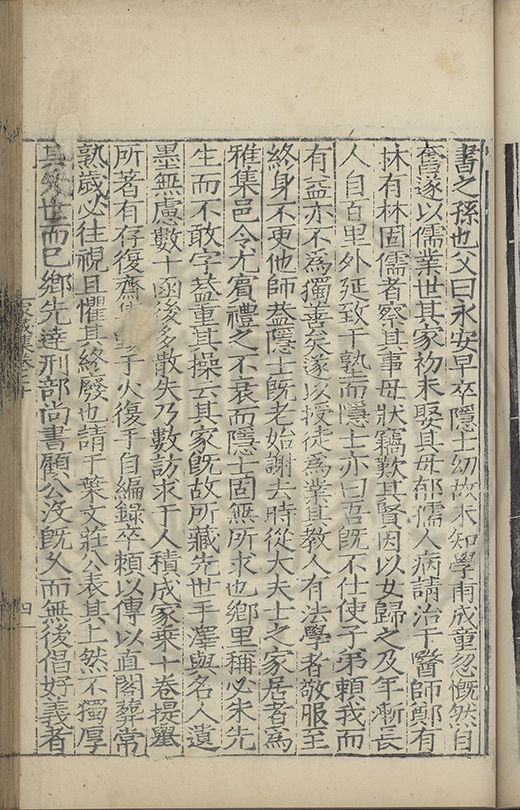 書之孫也父曰永安早卒隱士幼故未知學甫成童忽慨然自
奮遂以儒業世其家初未娶其母郁孺人病請治于醫師鄭有
林有林固儒者察其事母狀竊歎其賢因以女歸之及年漸長
人自百里外延致于塾而隱士亦曰吾旣不仕使子弟賴我而
有益亦不爲獨善矣遂以授徒爲業其教人有法學者敬服至
終身不更他師葢隱士旣老始謝去時從大夫士之家居者爲
雅集邑令尤賓禮之不衰而隱士固無所求也鄉里稱必朱先
生而不敢字葢重其操云其家旣故所藏先世手澤與名人遺
墨無慮數十函後多散失乃數訪求于人積成家乗十卷提舉
所著有存復齋于火復手自編録卒頼以傳以直閣葬常
熟歲必往視且懼其終廢也請于葉文莊公表其上然不獨厚
其先世而已鄉先達刑部尚書顧公沒旣久而無後倡好義者
家藏集卷
四